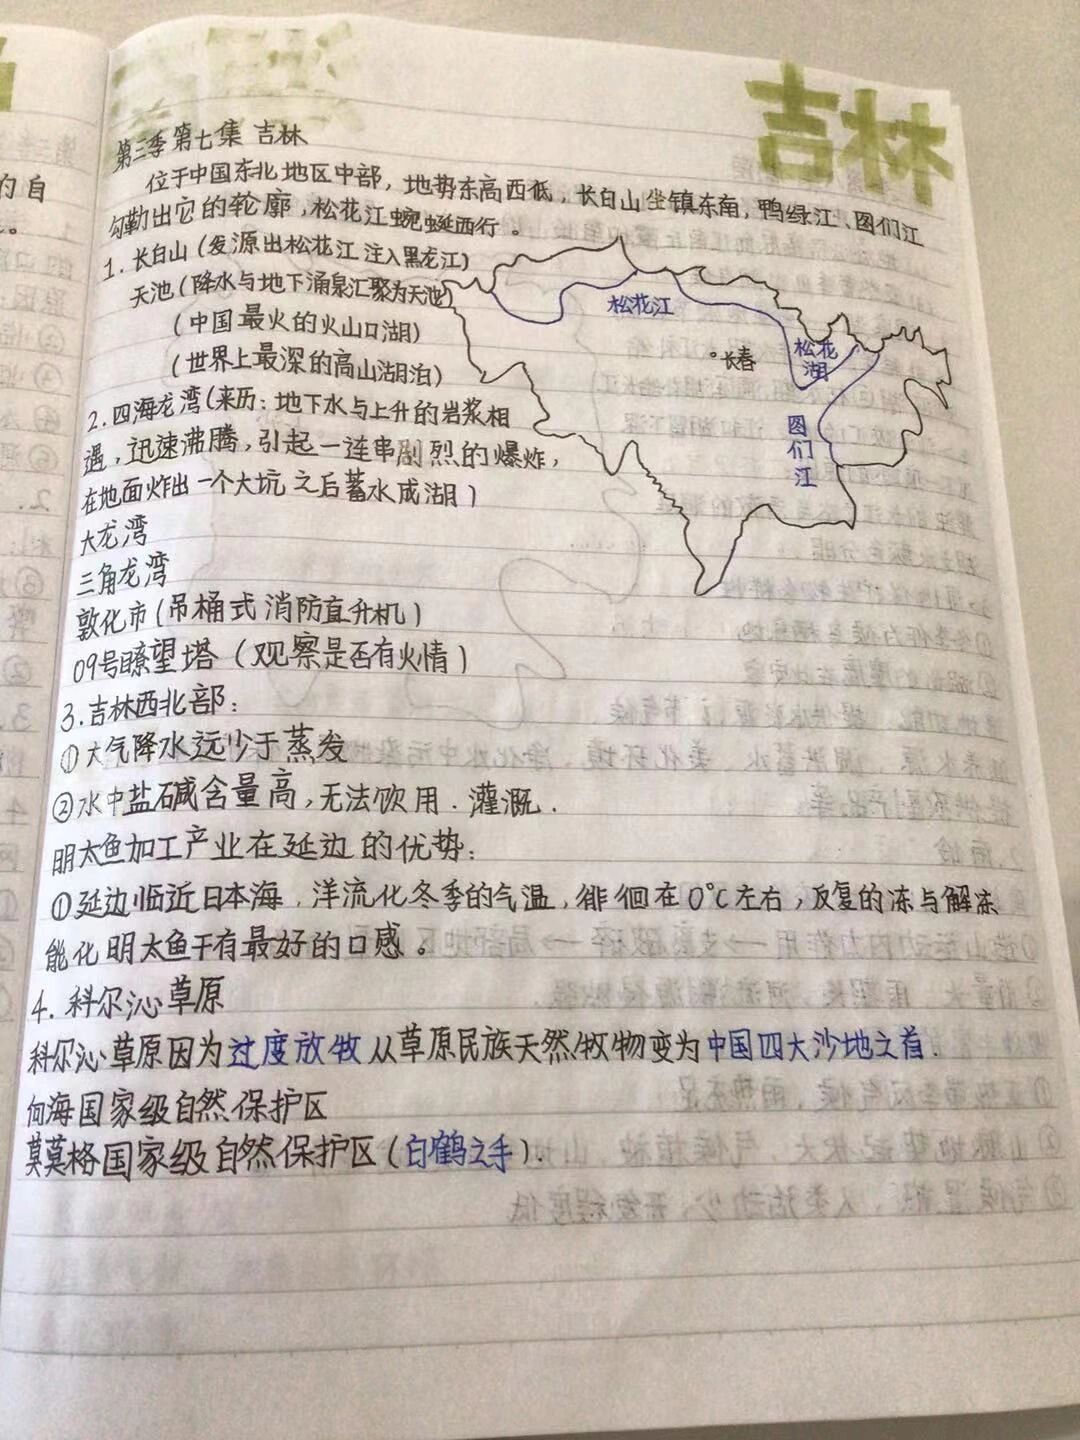 吉林
第三季第七集 吉林
位于中国东北地区中部，地势东高西低，长白山坐镇东南，鸭绿江、图们江
勾勒出它的轮廓，松花江蜿蜒西行。
1. 长白山（发源出松花江 注入黑龙江）
天池（降水与地下涌泉汇聚为天池）
（中国最火的火山口湖）
（世界上最深的高山湖泊）
松花江
长春
松花
湖
图
们
江
2. 四海龙湾（来历：地下水与上升的岩浆相
遇，迅速沸腾，引起一连串剧烈的爆炸，
在地面炸出一个大坑 之后蓄水成湖）
大龙湾
三角龙湾
敦化市（吊桶式消防直升机）
09号瞭望塔（观察是否有火情）
3. 吉林西北部：
①大气降水远少于蒸发
②水中盐碱含量高，无法饮用．灌溉．
明太鱼加工产业在延边的优势：
①延边临近日本海，洋流化冬季的气温，徘徊在0℃左右，反复的冻与解冻
能化明太鱼干有最好的口感。
4. 科尔沁草原
科尔沁草原因为过度放牧从草原民族天然牧物变为中国四大沙地之首．
向海国家级自然保护区
莫莫格国家级自然保护区（白鹤之手）．
的自